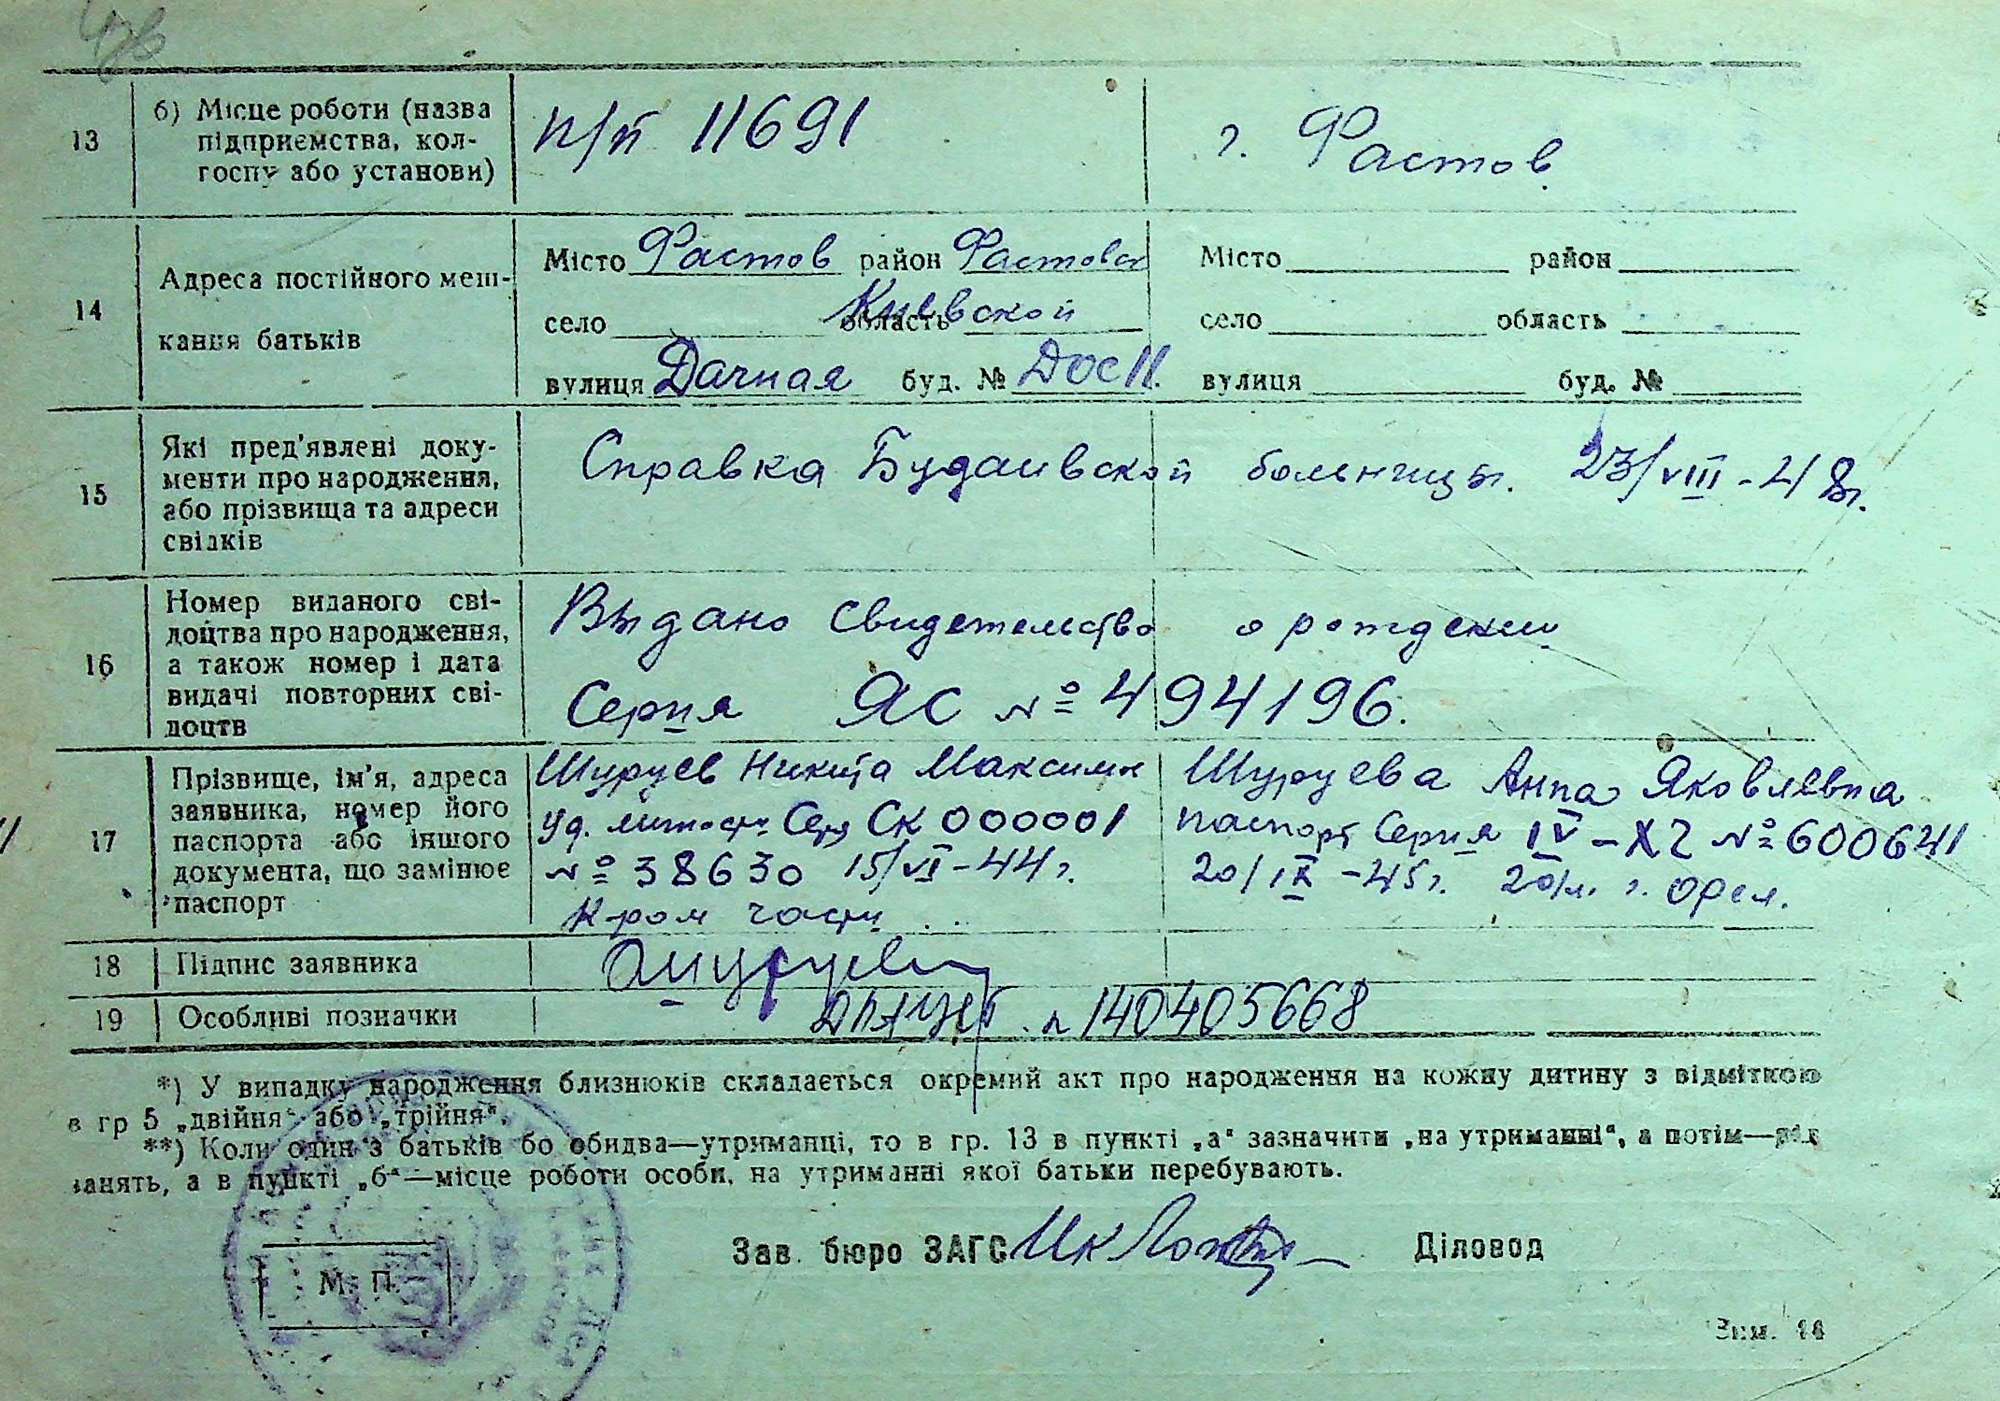 13
б) Місце роботи (назва
підприємства, кол-
госпу або установи)
п/п 11691
г. Фастов
14
Адреса постійного меш-
кання батьків
Місто Фастов район Фастовск
село область Киевской
вулиця Дачная буд. № ДОС 11.
Місто район
село область
вулиця буд. №
15
Які пред'явлені доку-
менти про народження,
або прізвища та адреси
свідків
Справка Будаивской больницы. 23/VIII-48г.
16
Номер виданого сві-
доцтва про народження,
а також номер і дата
видачі повторних сві-
доцтв
Выдано свидетельство о рождении
Серия ЯС № 494196.
17
Прізвище, ім'я, адреса
заявника, номер його
паспорта або іншого
документа, що замінює
паспорт
Шурупев Никита Максим
уд. личности Сер СК 000001
№ 38630 15/VI-44 г.
части
Шурупева Анна Яковлевна
паспорт Серия IV-XZ № 600641
20/IX-45г. г. Орел.
18
Підпис заявника
19
Особливі позначки
140405668
*) У випадку народження близнюків складається окремий акт про народження на кожну дитину з відміткою
в гр 5 „двійня“ або „трійня“.
**) Коли один з батьків бо обидва—утриманці, то в гр. 13 в пункті „а“ зазначити „на утриманні“, а потім—рід
занять, а в пункті „б“—місце роботи особи, на утриманні якої батьки перебувають.
М. П.
Зав. бюро ЗАГС
Діловод